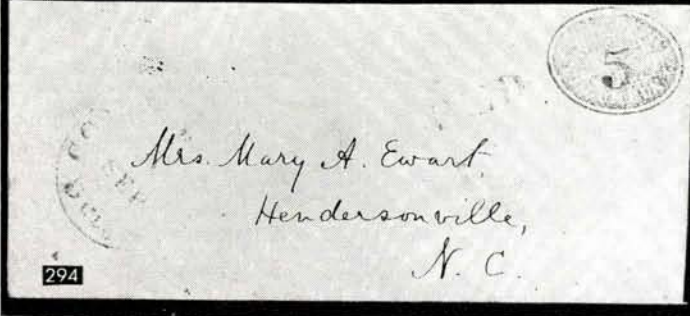 5
Mrs. Mary A. Ewart.
SEP
Hendersonville,
N. C.
294